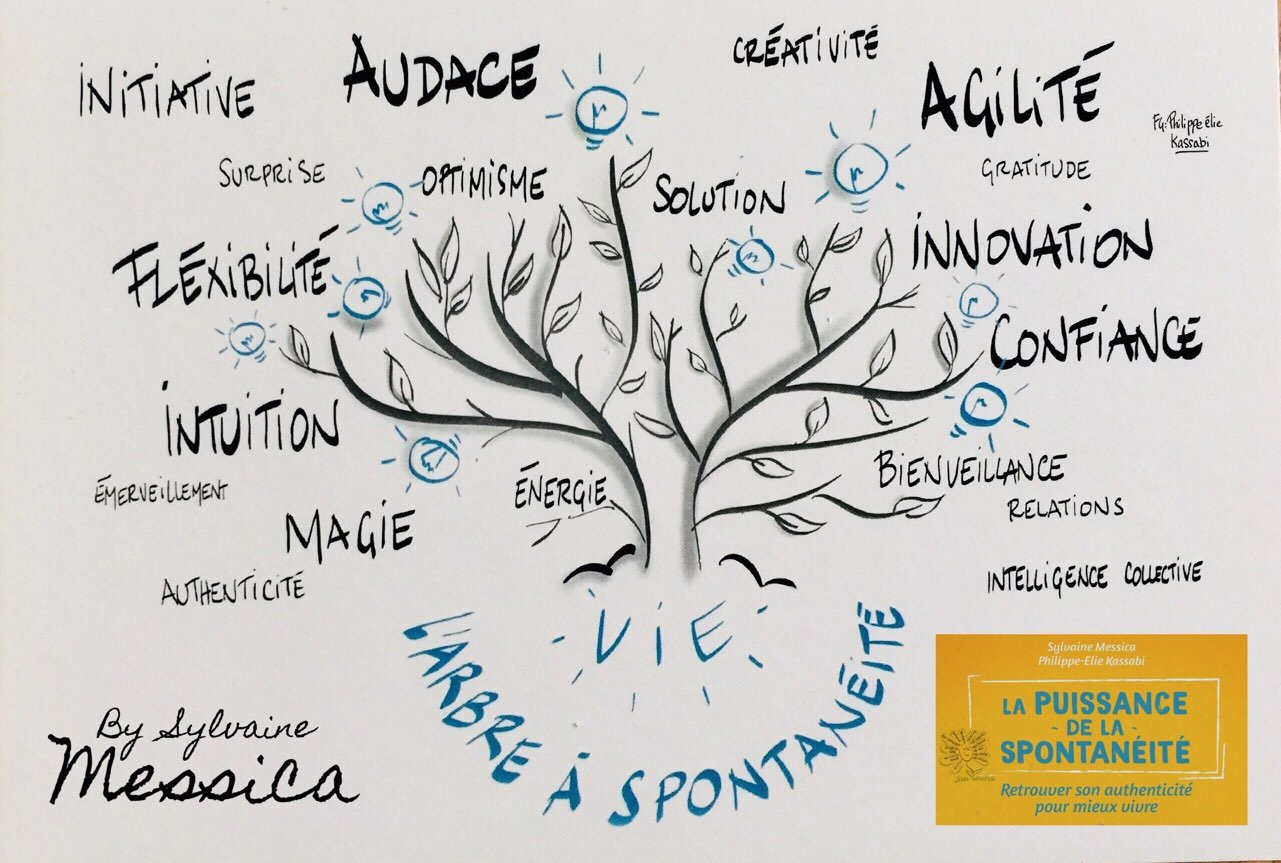 CRÉATIVITÉ
AUDACE
INITIATIVE
AGILITÉ
Philippe élie
Kassabi
SURPRISE
OPTIMISME
SOLUTION
GRATITUDE
FLÉXIBILITÉ
INNOVATION
CONFIANCE
INTUITION
BIENVEILLANCE
ÉMERVEILLEMENT
ÉNERGIE
RELATIONS
MAGIE
AUTHENTICITÉ
INTELLIGENCE COLLECTIVE
VIE
L'ARBRE À SPONTANÉITÉ
By Sylvaine
Messica
Sylvaine Messica
Philippe-Elie Kassabi
LA PUISSANCE
- DE LA -
SPONTANÉITÉ
Retrouver son authenticité
pour mieux vivre